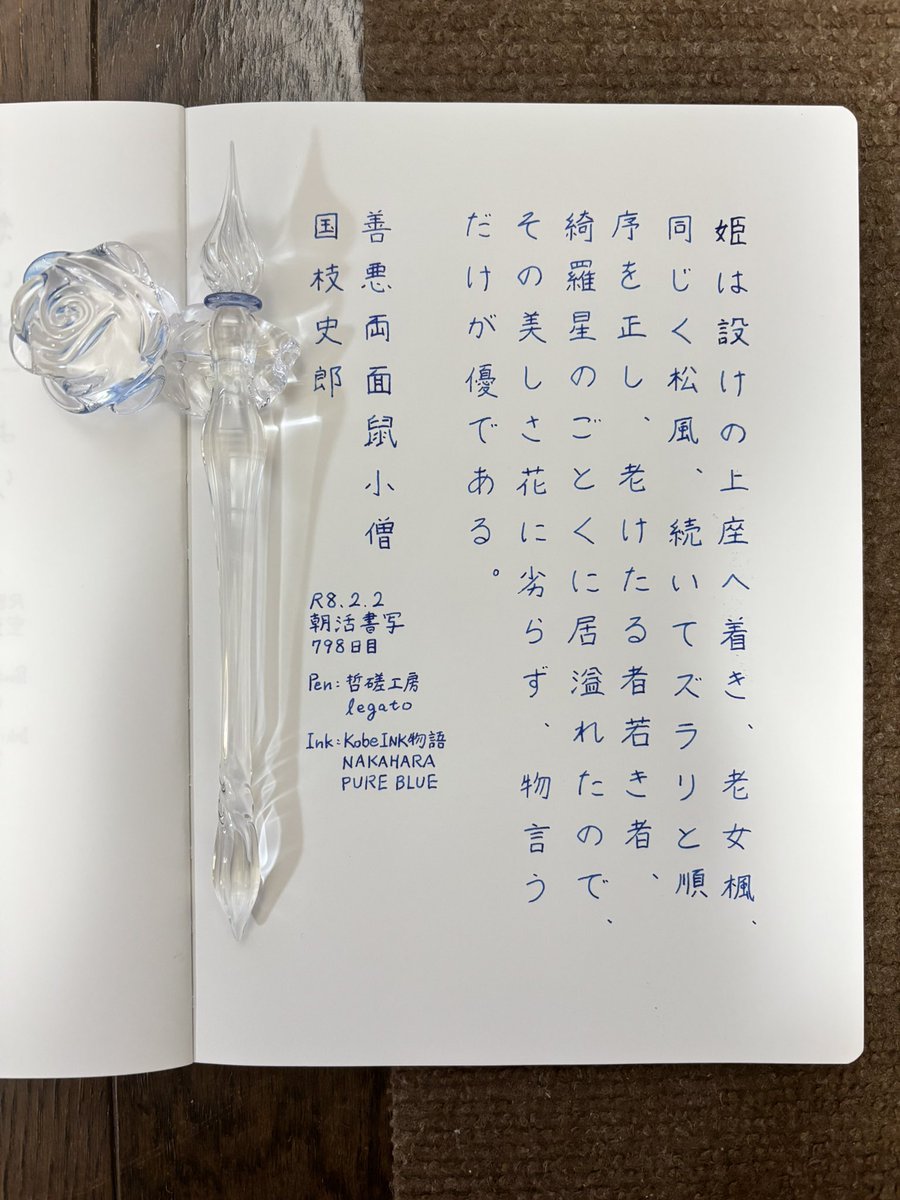 姫は設けの上座へ着き、老女楓、
同じく松風、続いてズラリと順
序を正し、老けたる者若き者、
綺羅星のごとくに居溢れたので、
その美しさ花に劣らず、物言う
だけが優である。
善悪両面鼠小僧
国枝史郎
R8.2.2
朝活書写
798日目
Pen:哲磋工房
legato
Ink:KobeINK物語
NAKAHARA
PURE BLUE